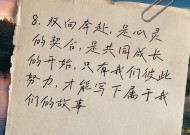 8. 双向奔赴,是心灵
的契合,是共同成长
的开始,只有我们彼此
努力,才能写下属于我
们的故事